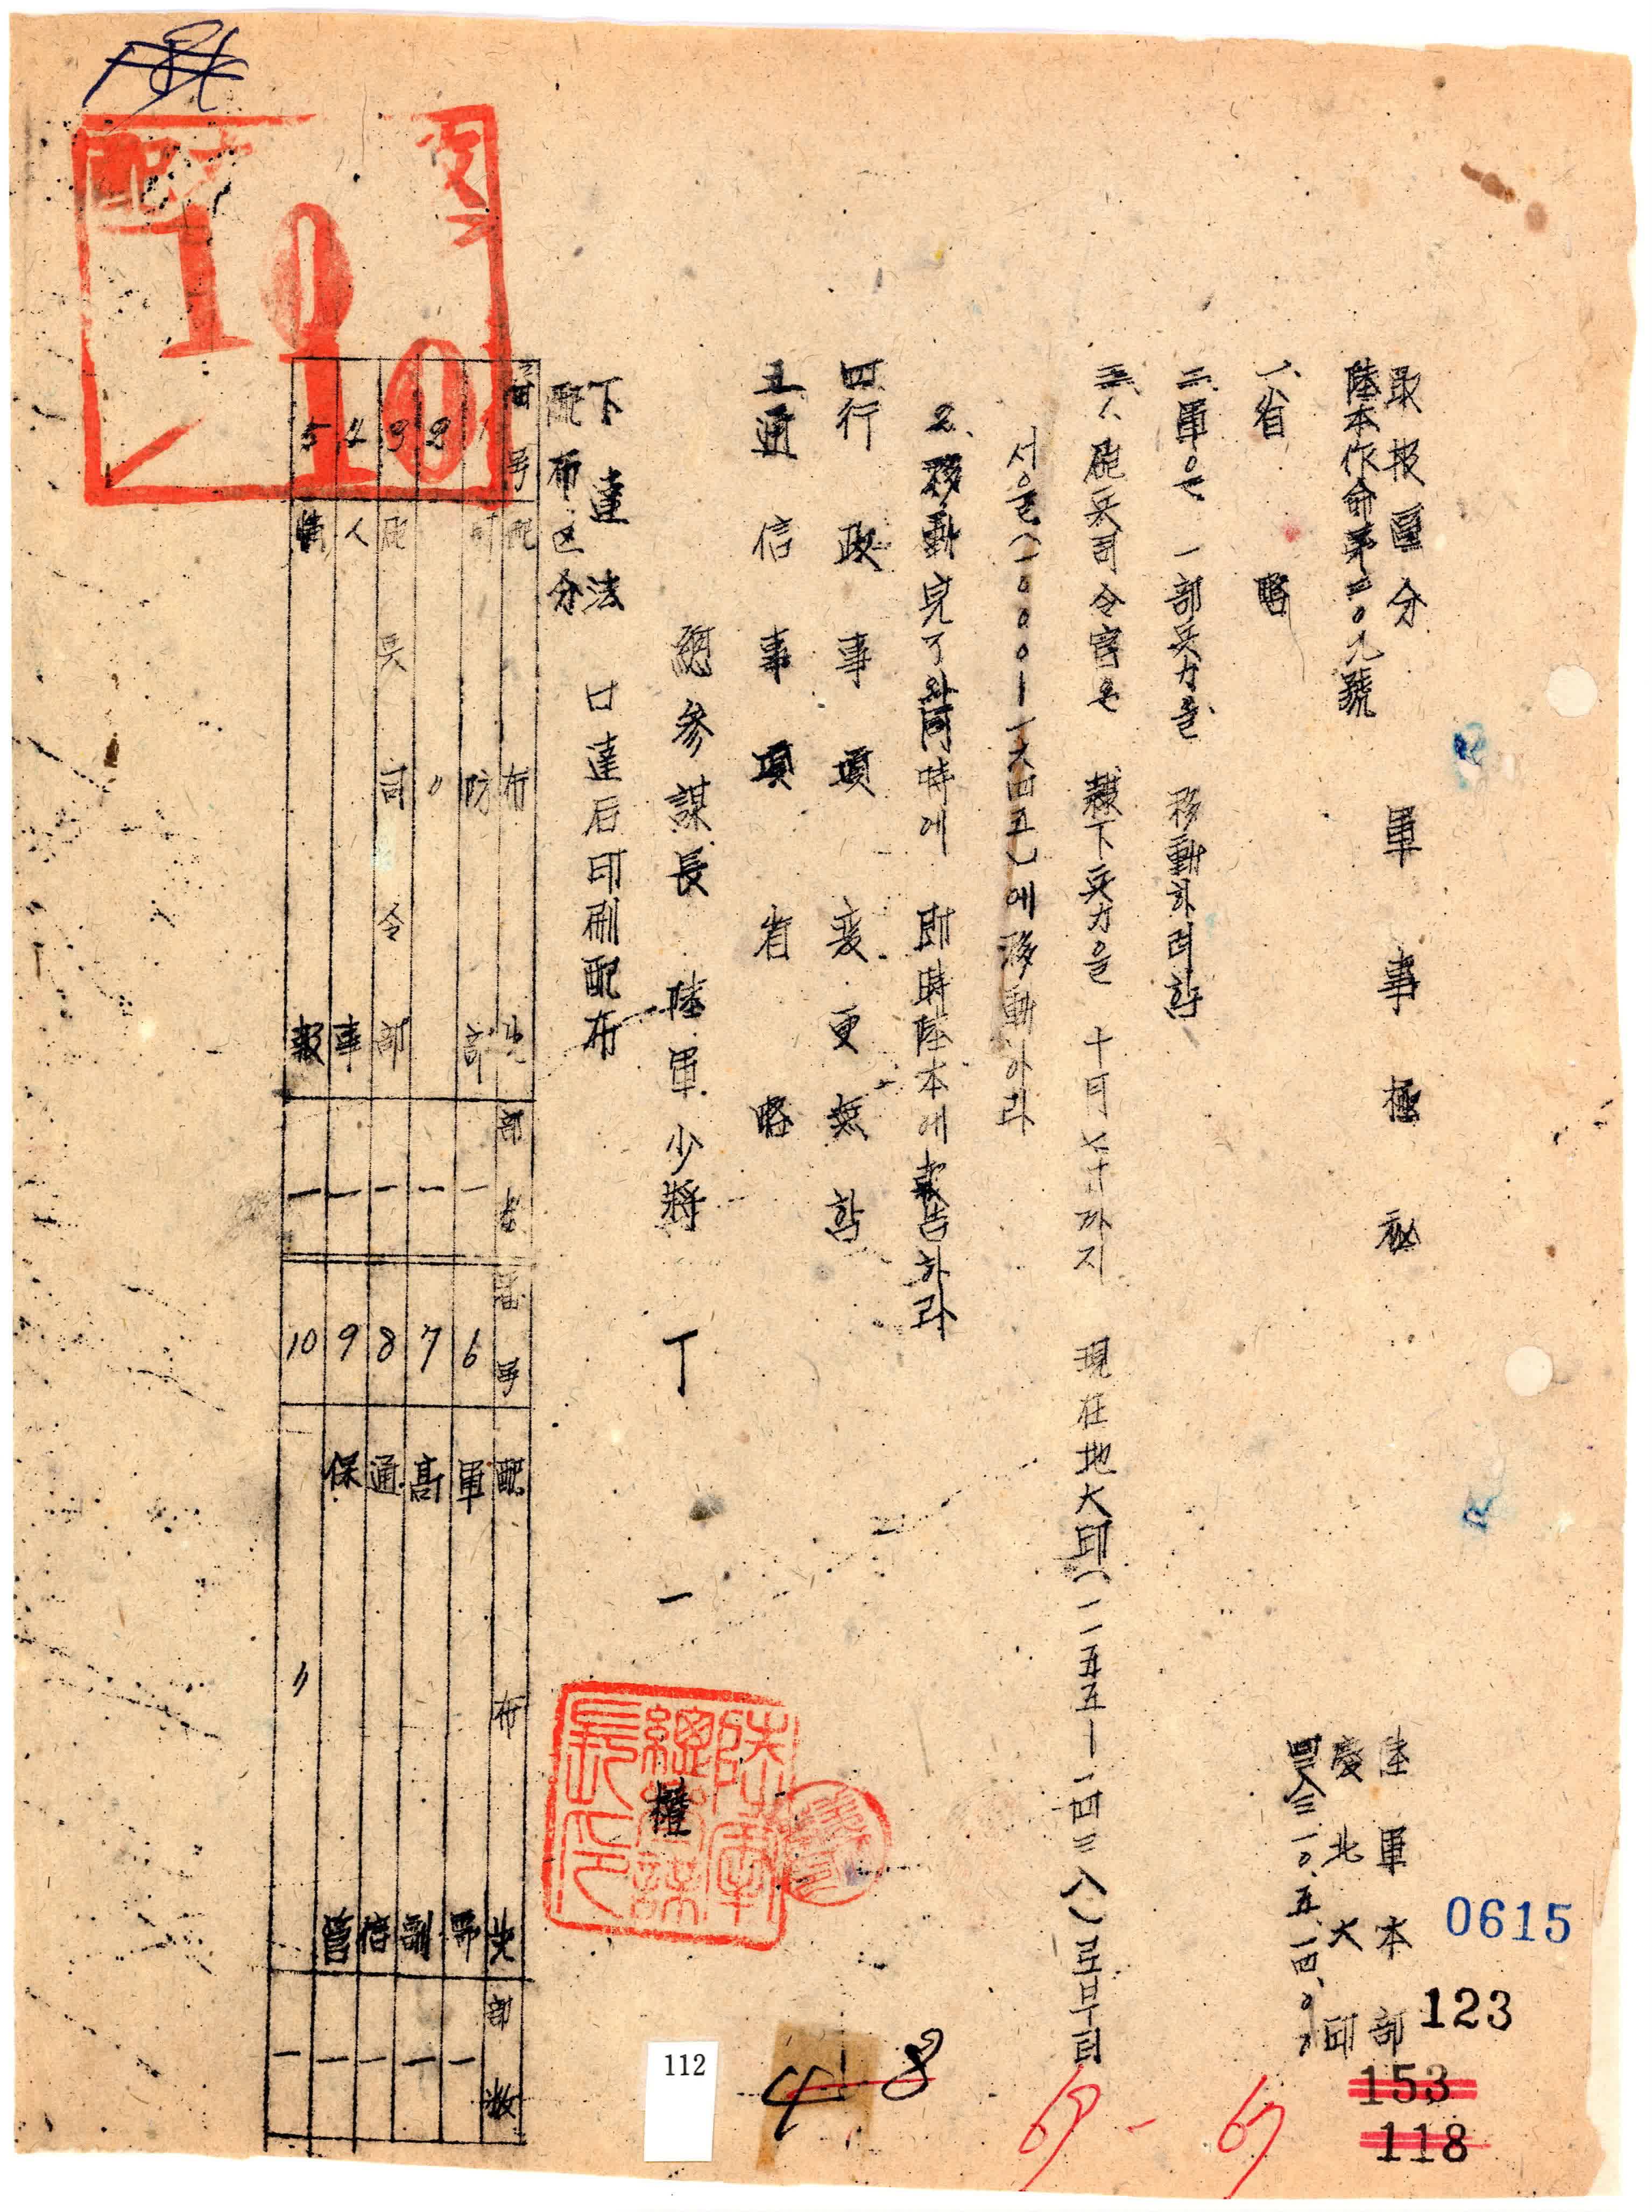 取扱區分 軍事極秘
陸軍本部
慶北大邱
四二八三、一〇、五、一四、〇〇
陸本作命第二〇九號
一、省略
二、軍은 一部兵力을 移動하려함
三、1、砲兵司令官은 隷下兵力을 十月七日까지 現在地大邱(一一五五—一四三八)로부터
서울(一〇〇〇—一六四五)에移動하라
2、移動完了와同時에 即時陸本에報告하라
四 行政事項 変更無함
五 通信事項 省略
總參謀長 陸軍少將 丁一權
陸軍總參謀長印
下達法 口達后印刷配布
配布区分
番号 配布先 部数 番号 配布先 部数
1 작防部 一 6 軍部 一
2 〃 一 7 高副 一
3 砲兵司令部 一 8 通信 一
4 人事 一 9 保管 一
5 情報 一 10 〃 一
10
10
0615
123
153
118
112
4 8
69 - 67